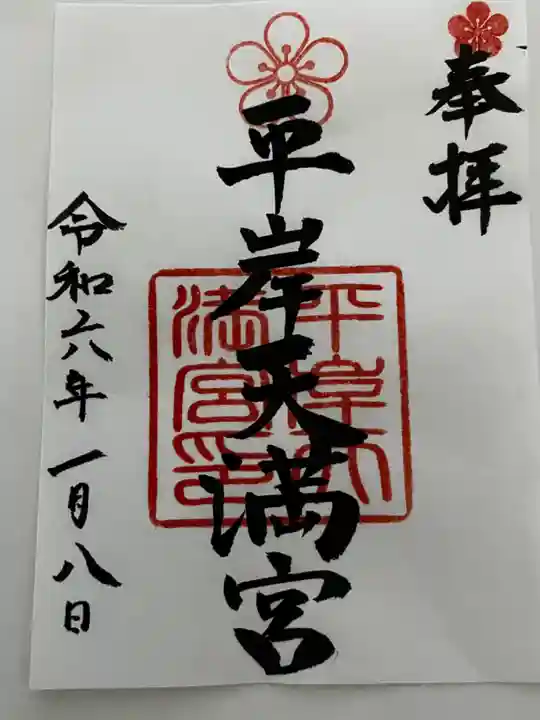 奉拝
平岸天満宮
平岸天満宮印
令和六年一月八日